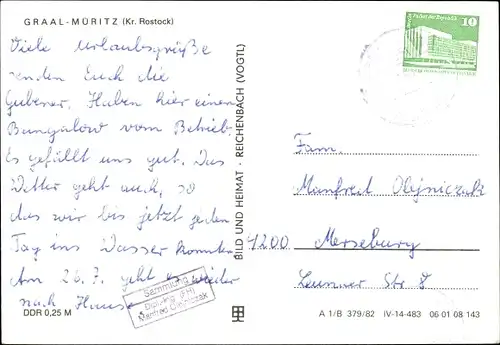 GRAAL-MÜRITZ (Kr. Rostock)
Viele Urlaubsgrüße
senden Euch die
Gubener. Haben hier einen
Bungalow vom Betrieb.
Es gefällt uns gut. Das
Wetter geht auch, so
das wir bis jetzt jeden
Tag ins Wasser konnten
Am 26.7. geht es wieder
nach Hause
DDR 0,25 M
Sammlung
Manfred Olejniczak
BILD UND HEIMAT · REICHENBACH (VOGTL)
10
Palast der Republik
Fam.
Manfred Olejniczak
4200 Merseburg
Leunaer Str 8
A 1/B 379/82 IV-14-483 06 01 08 143